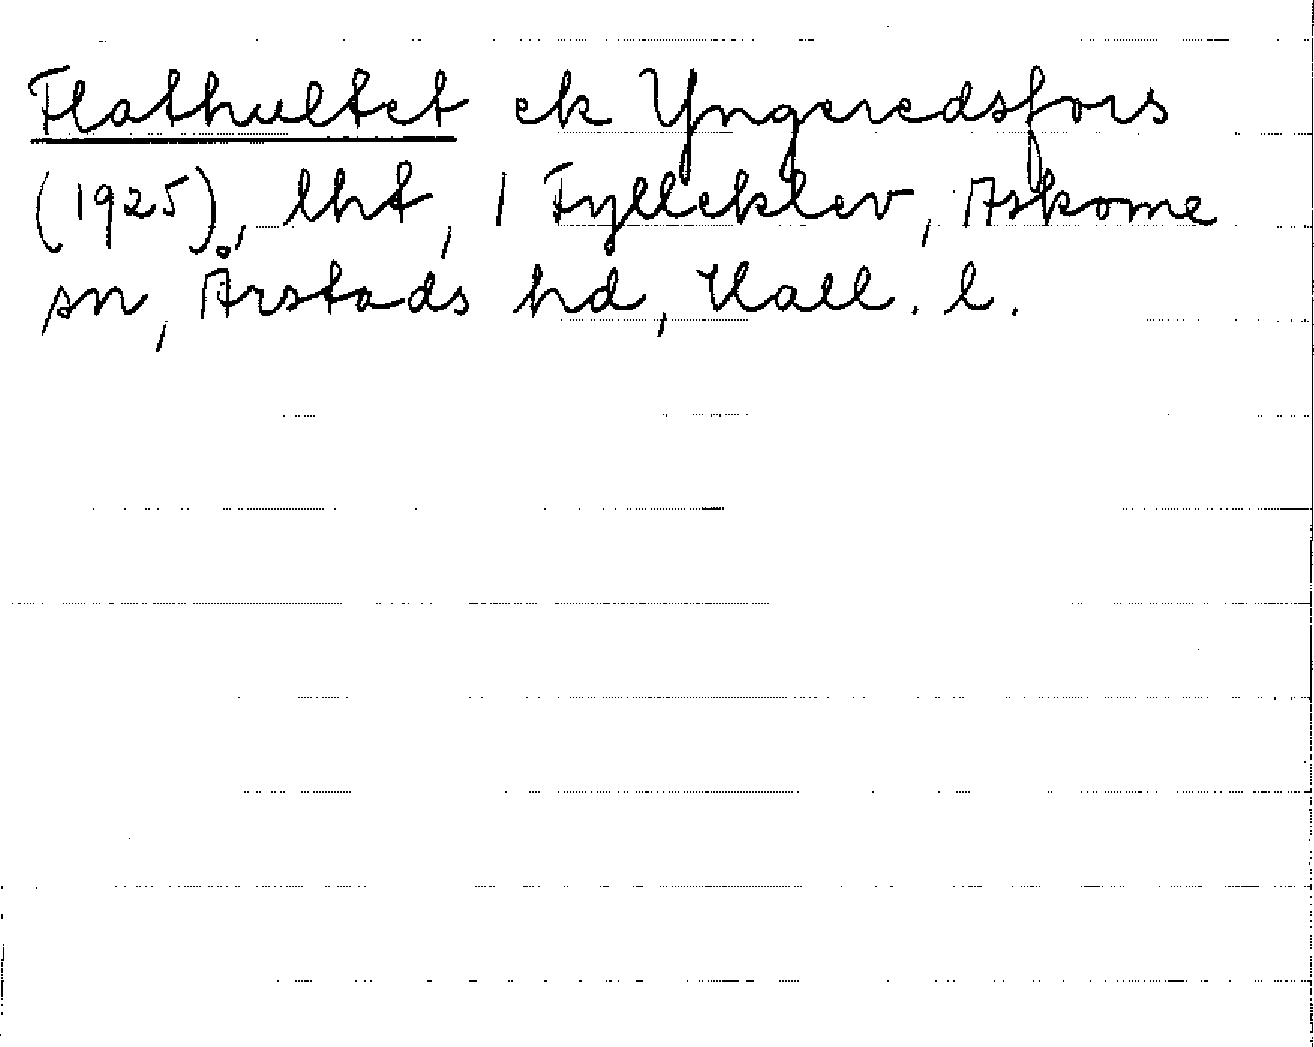 Flathultet ek Yngeredsfors
(1925), lht, 1 Fylleklev, Askome
sn, Årstads hd, Hall. l.